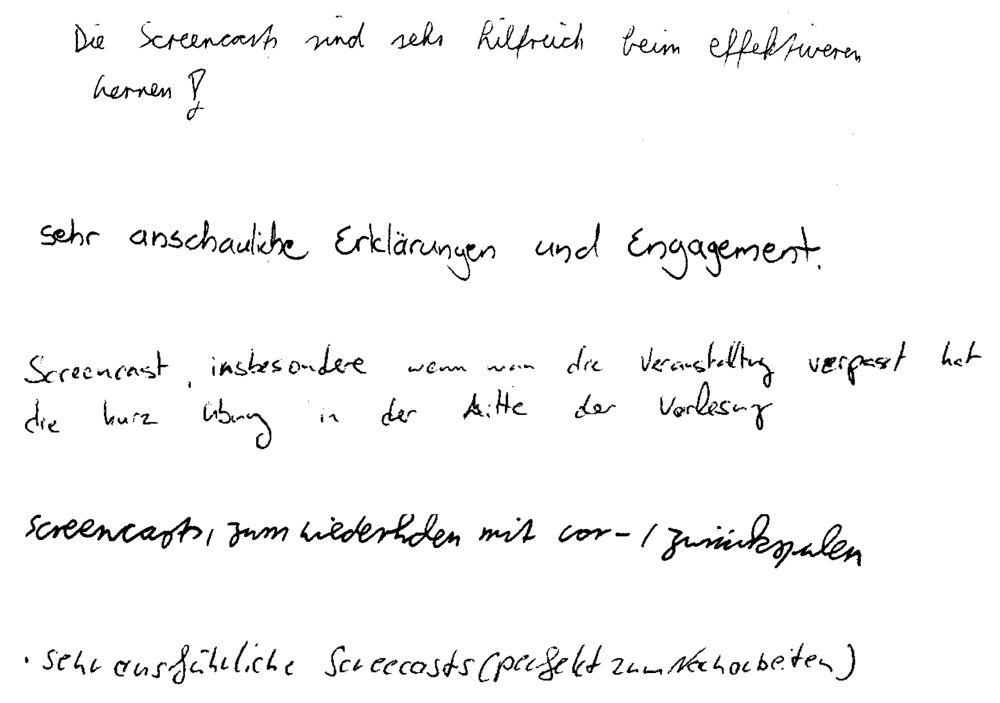 Die Screencasts sind sehr hilfreich beim effektiveren
Lernen!
sehr anschauliche Erklärungen und Engagement.
Screencast, insbesondere wenn man die Veranstaltung verpasst hat
die kurz Übung in der Mitte der Vorlesung
Screencasts, zum Wiederholen mit vor-/zurückspulen
· sehr ausführliche Screecasts (perfekt zum Nacharbeiten)